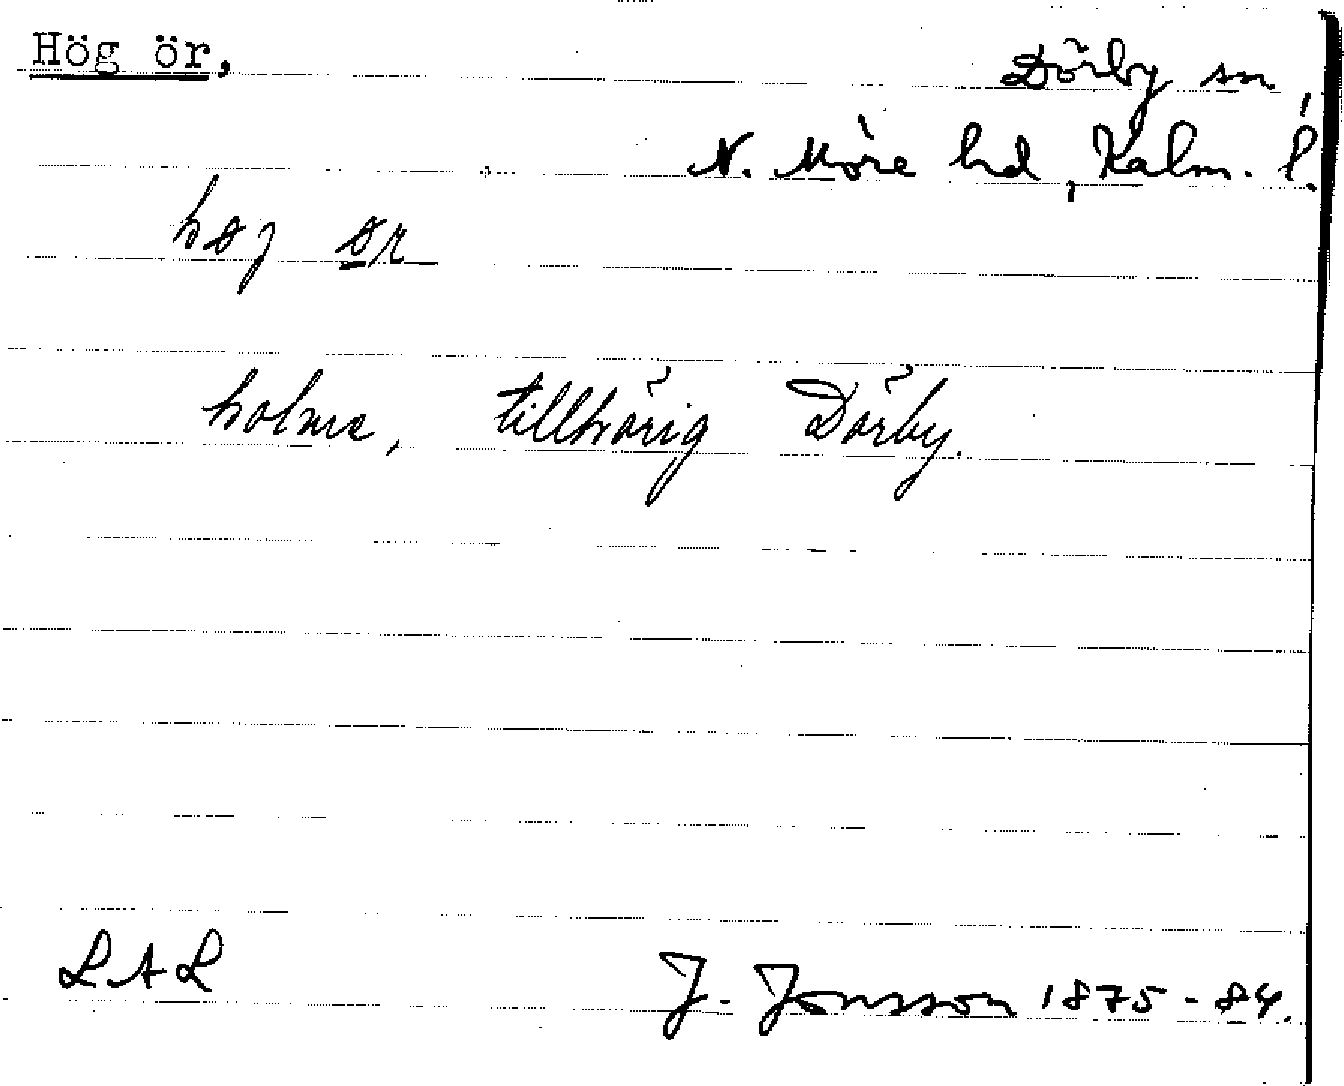 Hög ör,
Dörby sn,
N. Möre hd, Kalm. l.
høj ør
holme, tillhörig Dörby.
LAL
J. Jonsson 1875-84.